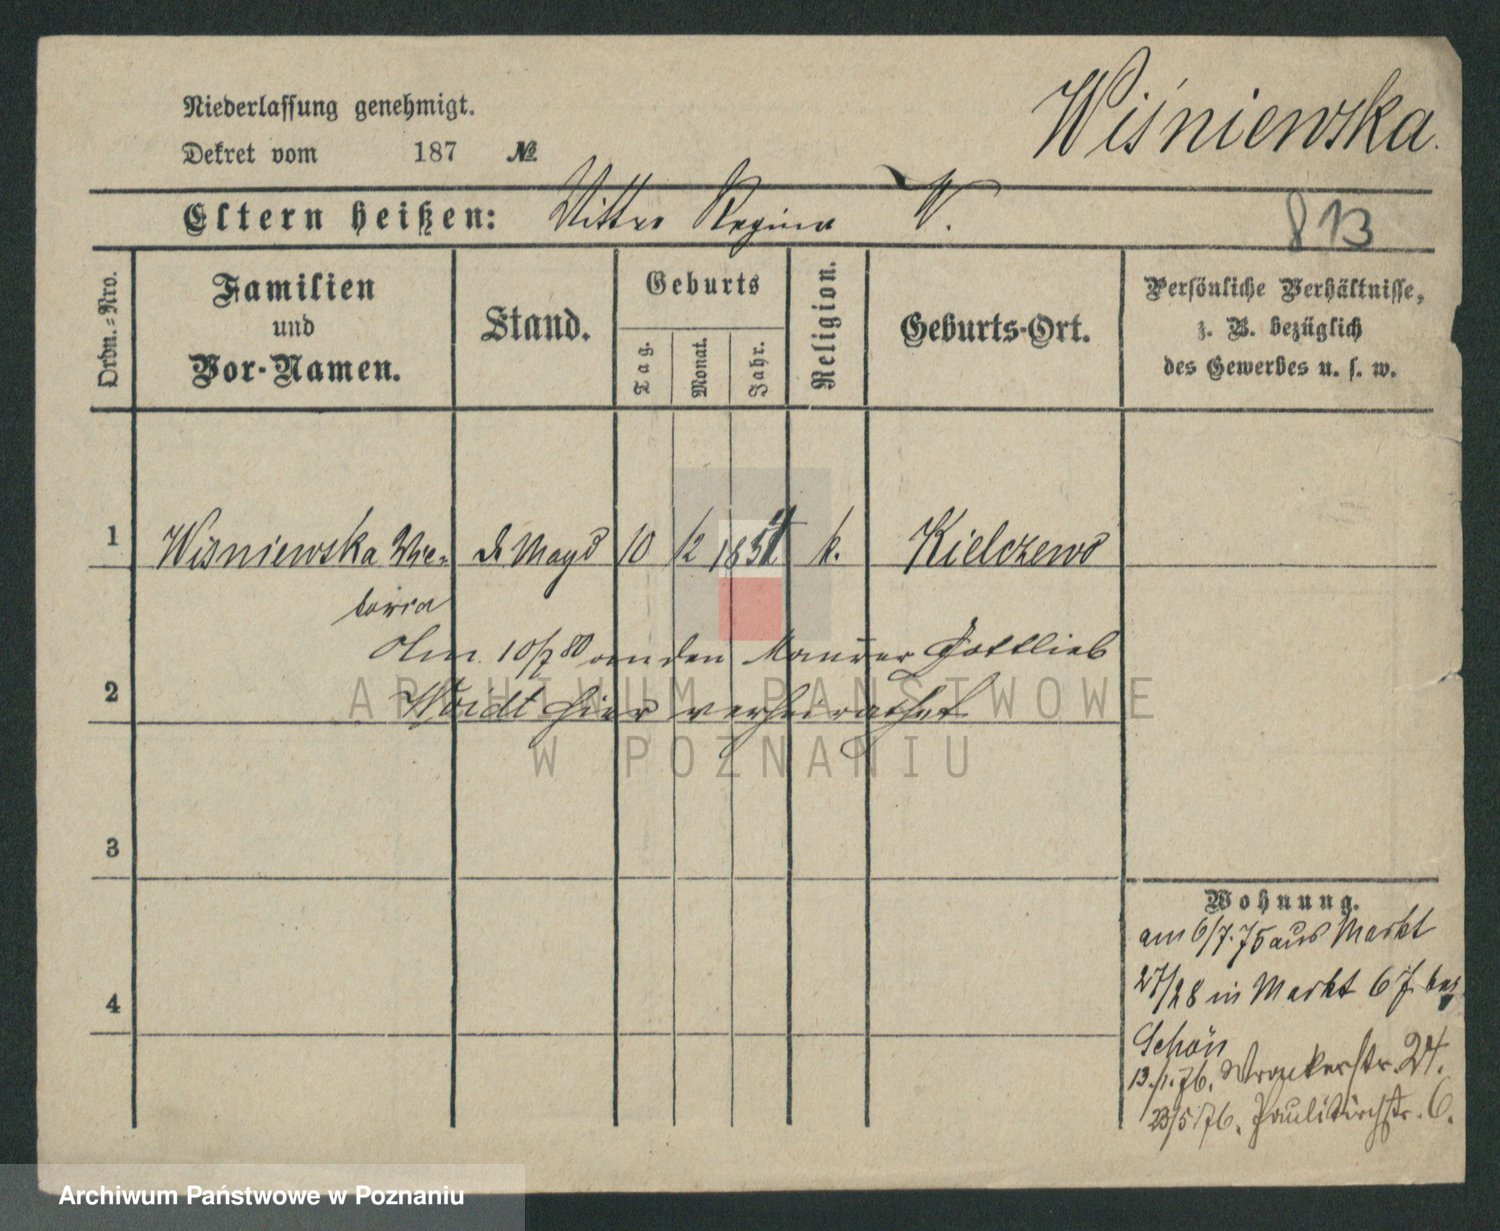 Wiśniewska.
Niederlassung genehmigt.
Dekret vom 187 №
Eltern heißen: Regina W.
813
Ordn.-Nro.
Familien
und
Vor-Namen.
Stand.
Geburts
Tag.
Monat.
Jahr.
Religion.
Geburts-Ort.
Persönliche Verhältnisse,
z. B. bezüglich
des Gewerbes u. s. w.
1 Wisniewska Vic= d. Magd 10 12 185 k. Kielczewo
toria
Am 10/7 80 an den Maurer Gottlieb
2 Woidt hier verheirathet
3
4
Wohnung.
am 6/7.75 aus Markt
27/28 in Markt 67. bei
Schön
13./1.76. Wronkerstr. 24.
23/5 76. Paulikirchstr. 6.
ARCHIWUM PAŃSTWOWE
W POZNANIU
Archiwum Państwowe w Poznaniu